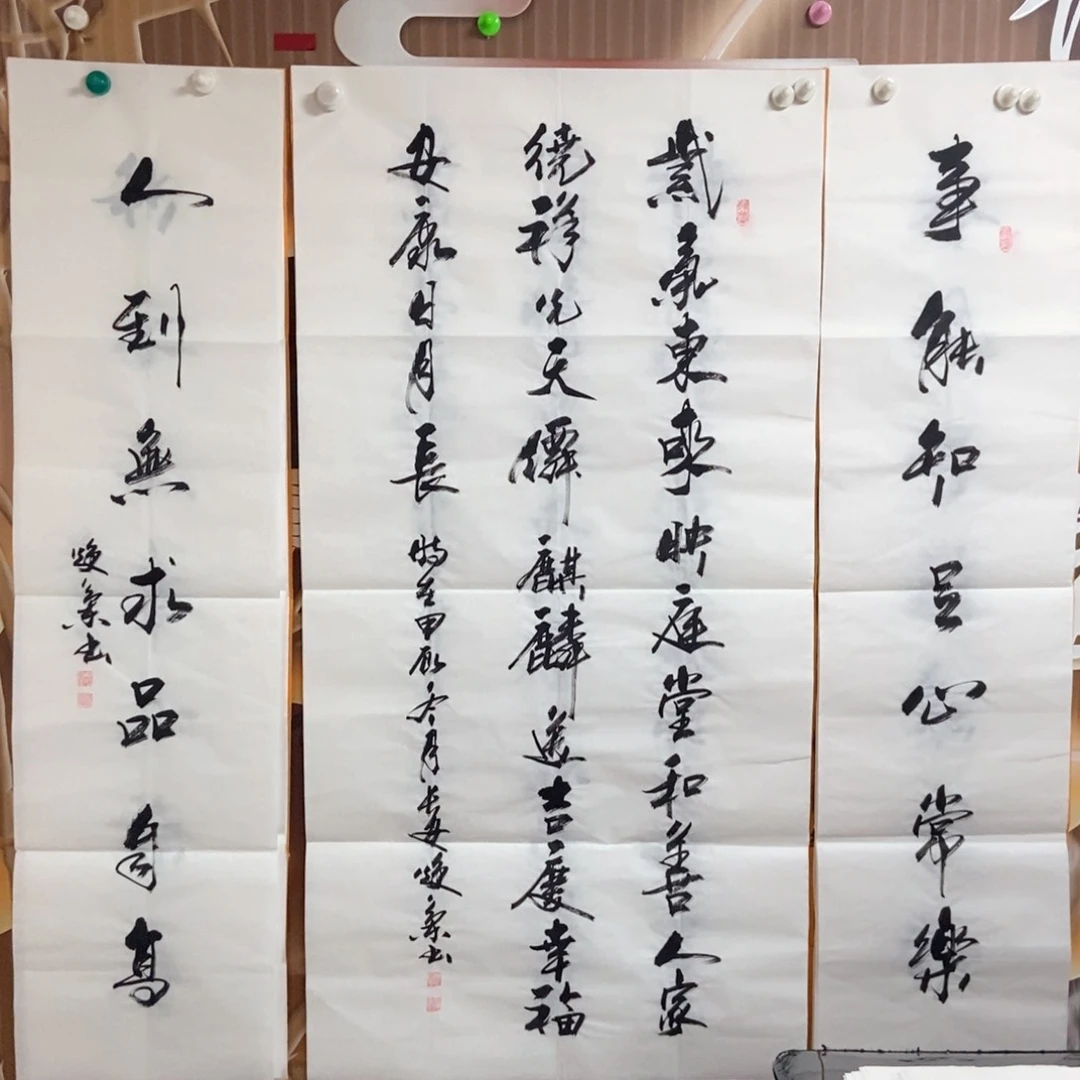 事能知足心常樂
紫氣東來映庭堂和善人家
繞祥光天僊麒麟送吉慶幸福
安康日月長 時在甲辰冬月長安煥书
人到無求品自高
煥书